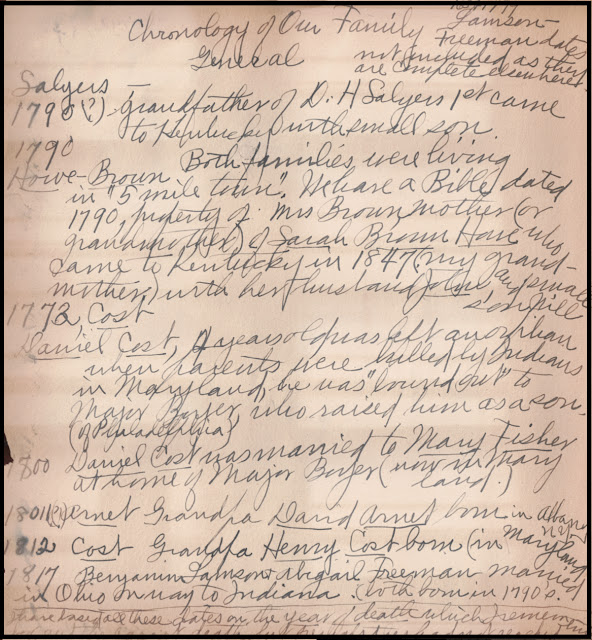 Chronology of Our Family
General
Lamson-
Freeman dates
not included as they
are complete elsewhere.
Salyers —
1790(?) - grandfather of D. H Salyers 1st came
to Kentucky with small son.
1790
Howe-Brown Both families were living
in "5 mile town". We have a Bible dated
1790, property of Mrs Brown mother (or
grandmother) of Sarah Brown Howe who
came to Kentucky in 1847 (my grand-
mother) with her husband John and small
son Will
1773, Cost
Daniel Cost, 4 years old was left an orphan
when parents were killed by Indians
in Maryland, he was "bound out" to
Major Boyer, who raised him as a son.
(of Philadelphia)
1800 Daniel Cost was married to Mary Fisher
at home of Major Boyer (now in Mary
land.)
1801(?) Arnet Grandpa David Arnet born in Albany
N.Y
1812 Cost Grandpa Henry Cost born (in Maryland)
1817 Benjamin Lamson & Abigail Freeman married
in Ohio on way to Indiana. (both born in 1790's.
have based all these dates on the year of death which I remember